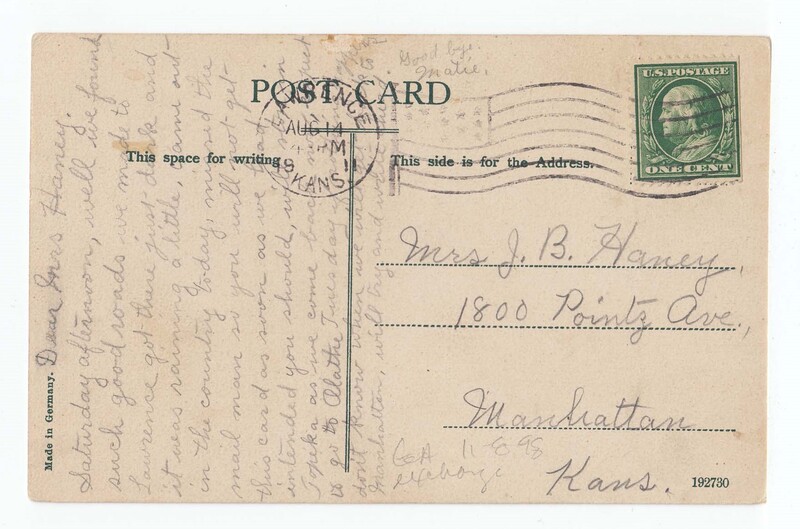 POST CARD
This space for writing
This side is for the Address.
Made in Germany.
192730
U.S. POSTAGE
ONE CENT
LAWRENCE
AUG 14
PM
1911
KANS.
Dear Mrs Haney.
Saturday afternoon, well we found
such good roads we made to
Lawrence got there just dark and
it was raining a little, came out
in the country today, missed the
mail man so you will not get
this card as soon as we had
intended you should, will
Topeka as we come back
to go to Olathe Tuesday
don't know when we
Manhattan, will try and
Good bye.
Matie.
Mrs J. B. Haney,
1800 Pointz Ave.,
Manhattan
Kans.
11-8-98
exchange